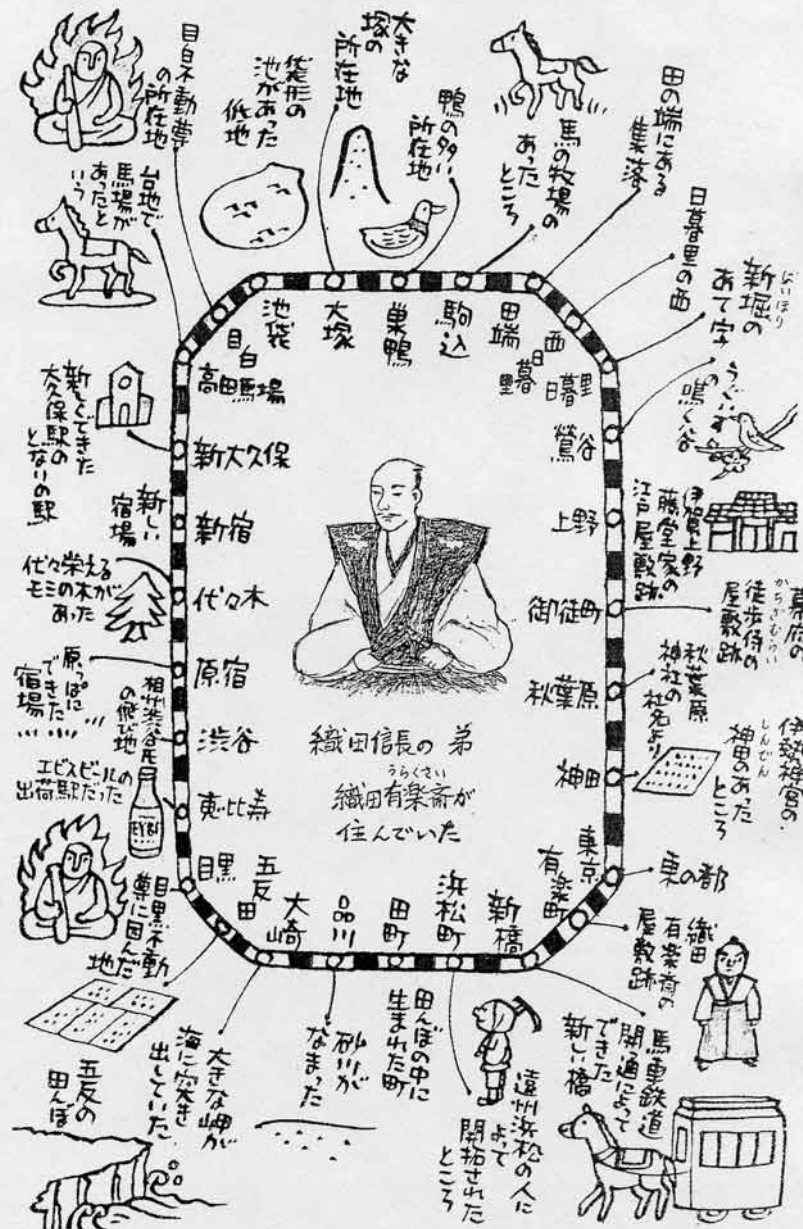 目白不動尊
の所在地
台地で
馬場が
あったと
いう
袋形の
池があった
低地
大きな
塚の
所在地
鴨の多い
所在地
馬の牧場の
あった
ところ
田の端にある
集落
日暮里の西
新堀の
にいほり
あて字
うぐいす
の
鳴く谷
伊賀上野
藤堂家の
江戸屋敷跡
幕府の
徒歩侍の
かちざむらい
屋敷跡
秋葉原
神社の
社名より
伊勢神宮の
神田のあった
しんでん
ところ
東の都
織田
有楽斎の
屋敷跡
馬車鉄道
開通によって
できた
新しい橋
遠州浜松の人に
よって
開拓された
ところ
田んぼの中に
生まれた町
砂川が
なまった
大きな岬が
海に突き
出していた
五反の
田んぼ
目黒不動
尊に因んだ
地
エビスビールの
出荷駅だった
EYBI
相州渋谷氏
の飛び地
原っぱに
できた
宿場
代々栄える
モミの木が
あった
新しい
宿場
新しくできた
大久保駅の
とないの駅
高田馬場
目白
池袋
大塚
巣鴨
駒込
田端
西日暮里
日暮里
鶯谷
上野
御徒町
秋葉原
神田
東京
有楽町
新橋
浜松町
田町
品川
大崎
五反田
目黒
恵比寿
渋谷
原宿
代々木
新宿
新大久保
織田信長の弟
うらくさい
織田有楽斎が
住んでいた